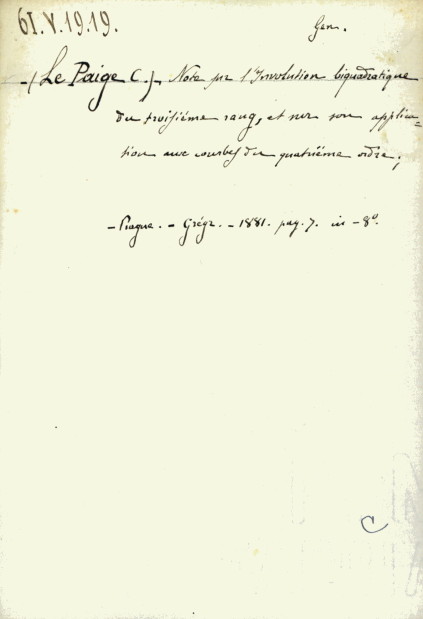 61.V.19.19.
Gen.
- (Le Paige C.). Note sur l'Involution biquadratique
du troisiéme rang, et sur son applica=
tion aux courbes du quatriéme ordre;
- Prague. - Grégr. - 1881. pag. 7. in - 8º.
C